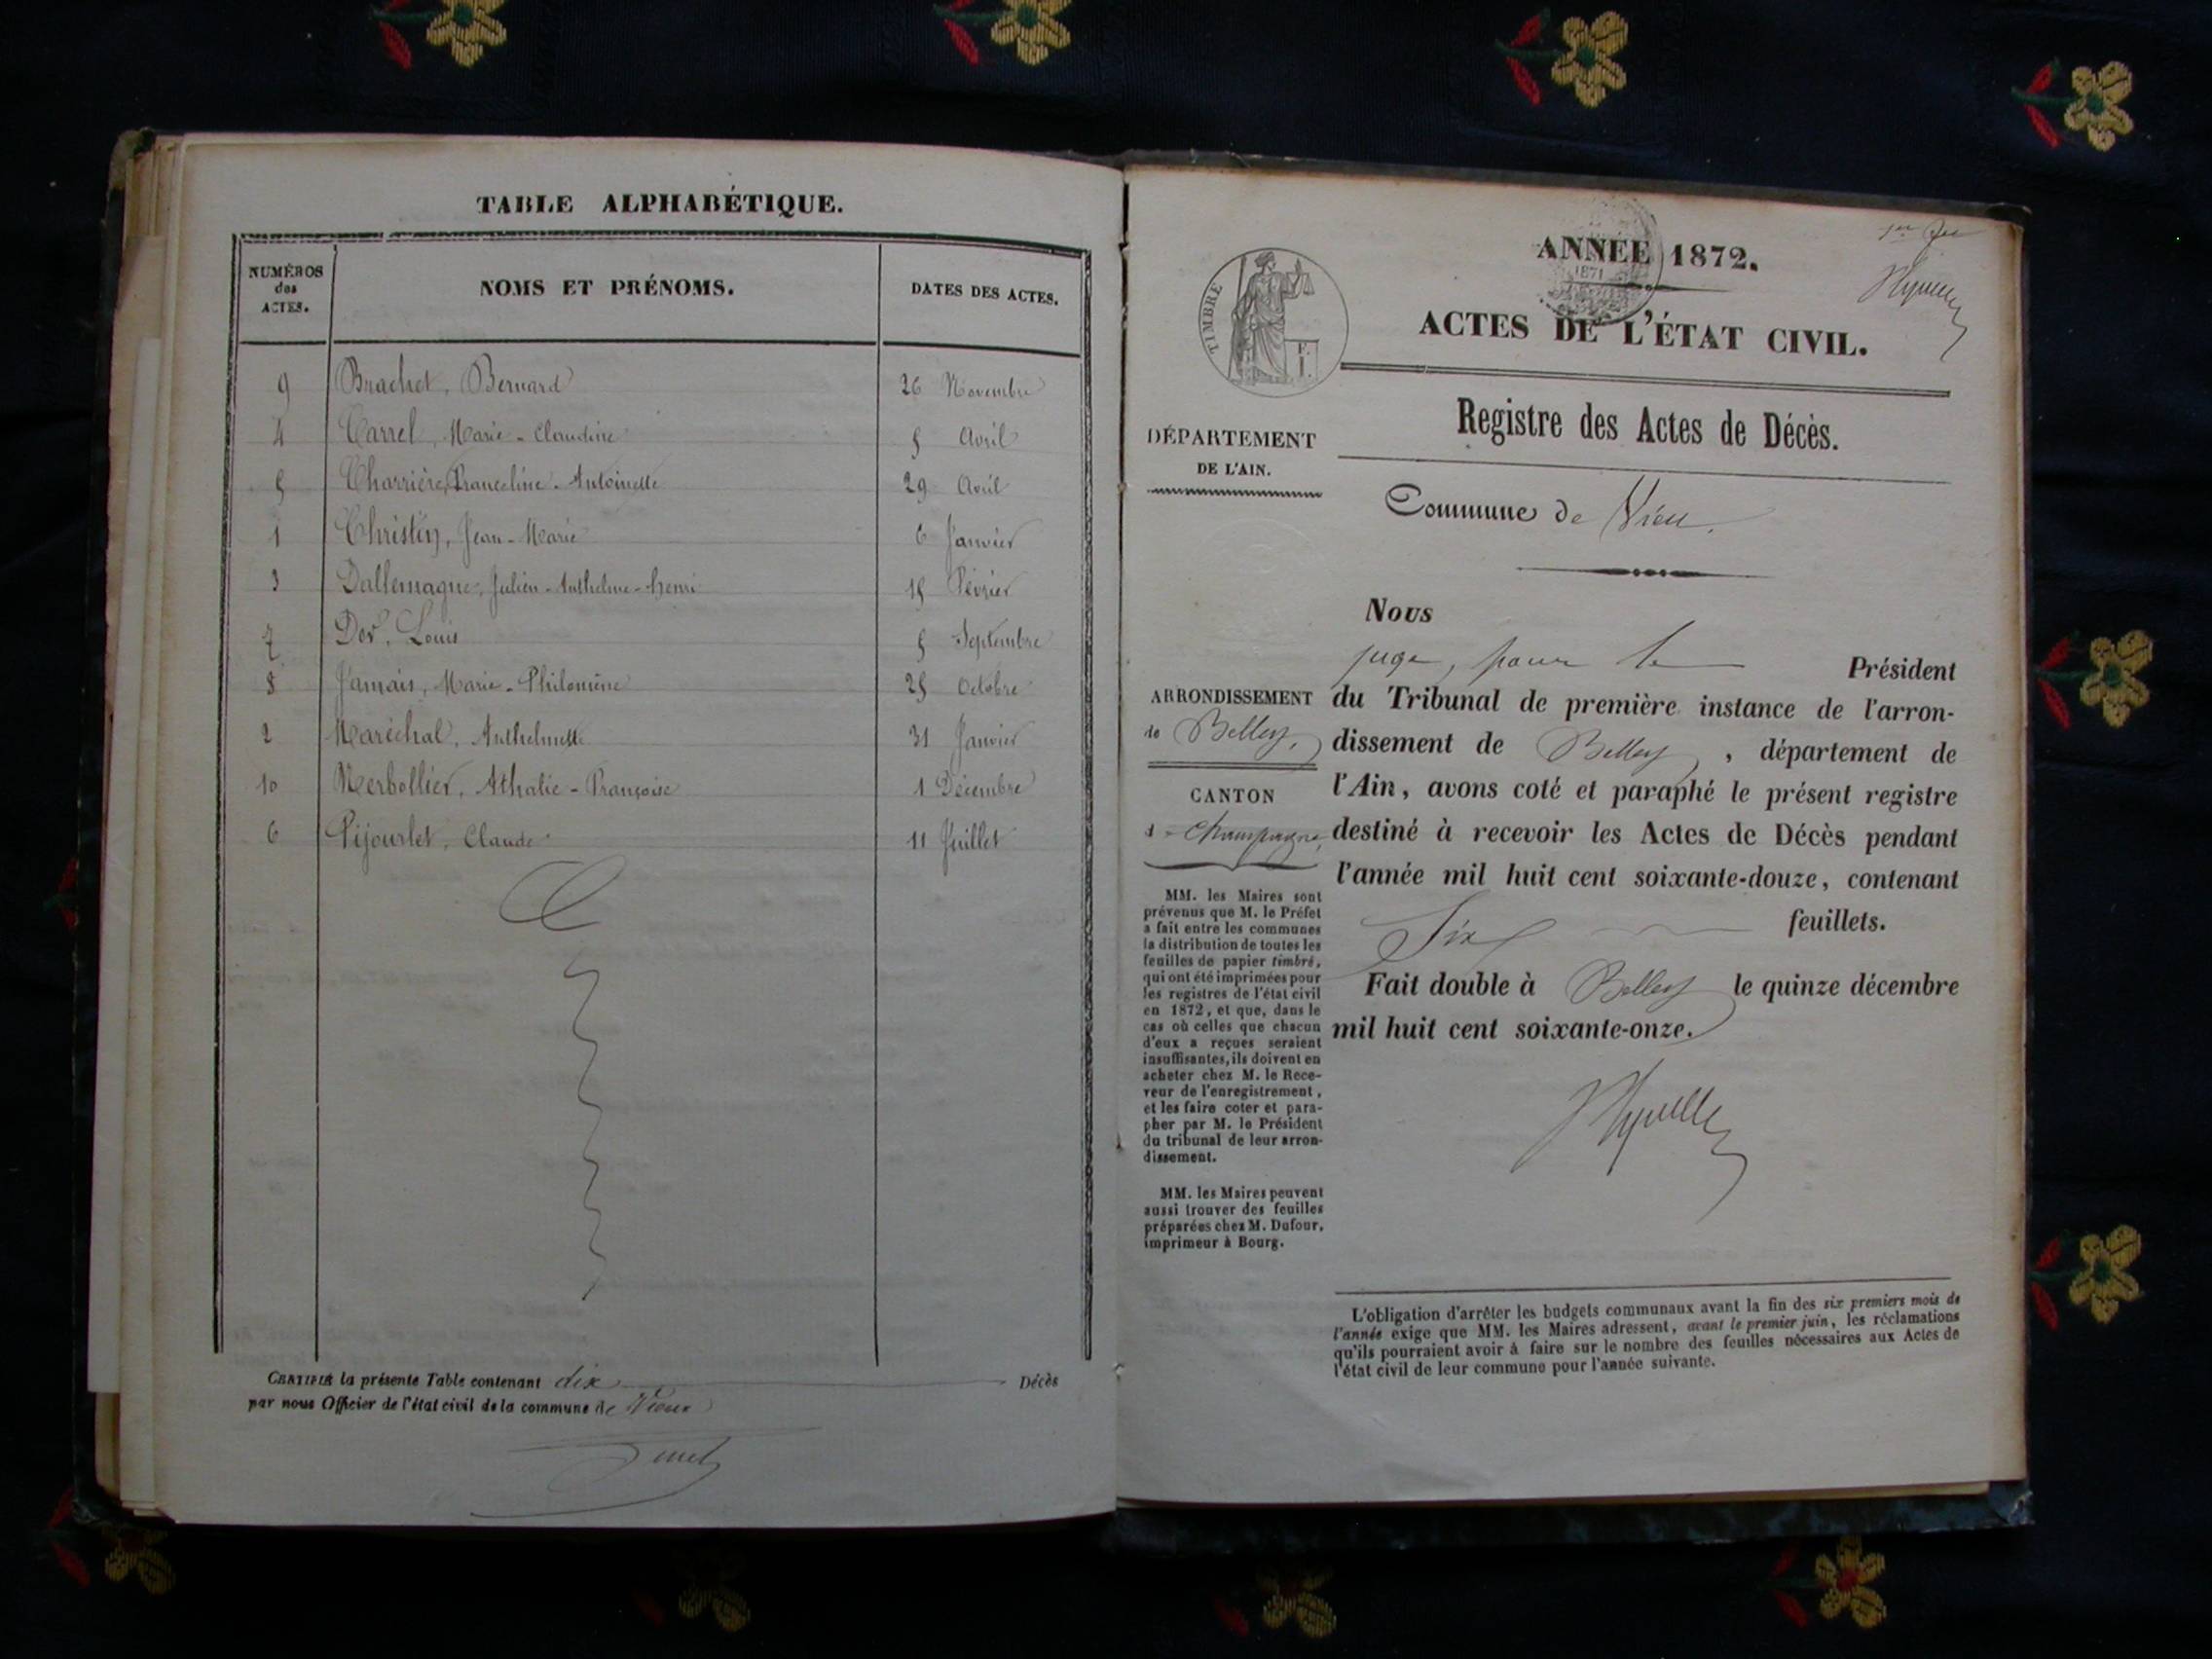 TABLE ALPHABÉTIQUE.
NUMÉROS
des
ACTES.
NOMS ET PRÉNOMS.
DATES DES ACTES.
9 Brachet, Bernard 26 Novembre
4 Carrel, Marie-Claudine 5 Avril
5 Charrière, Franceline-Antoinette 29 Avril
1 Christin, Jean-Marie 6 Janvier
3 Dallemagne, Julien-Anthelme-Henri 15 Février
7 Dor, Louis 5 Septembre
8 Jamais, Marie-Philomène 25 Octobre
2 Maréchal, Anthelmette 31 Janvier
10 Merbollier, Athalie-Françoise 1 Décembre
6 Pijourlet, Claude 11 Juillet
CERTIFIÉ la présente Table contenant dix Décès
par nous Officier de l'état civil de la commune de Vieux
ANNÉE 1872.
1871
ACTES DE L'ÉTAT CIVIL.
TIMBRE
Registre des Actes de Décès.
DÉPARTEMENT
DE L'AIN.
Commune de Vieu.
Nous
juge, pour le Président
du Tribunal de première instance de l'arron-
dissement de Belley, département de
l'Ain, avons coté et paraphé le présent registre
destiné à recevoir les Actes de Décès pendant
l'année mil huit cent soixante-douze, contenant
Six feuillets.
Fait double à Belley le quinze décembre
mil huit cent soixante-onze.
ARRONDISSEMENT
de Belley,
CANTON
d Champagne,
MM. les Maires sont
prévenus que M. le Préfet
a fait entre les communes
la distribution de toutes les
feuilles de papier timbré,
qui ont été imprimées pour
les registres de l'état civil
en 1872, et que, dans le
cas où celles que chacun
d'eux a reçues seraient
insuffisantes, ils doivent en
acheter chez M. le Rece-
veur de l'enregistrement,
et les faire coter et para-
pher par M. le Président
du tribunal de leur arron-
dissement.
MM. les Maires peuvent
aussi trouver des feuilles
préparées chez M. Dufour,
imprimeur à Bourg.
L'obligation d'arrêter les budgets communaux avant la fin des six premiers mois de
l'année exige que MM. les Maires adressent, avant le premier juin, les réclamations
qu'ils pourraient avoir à faire sur le nombre des feuilles nécessaires aux Actes de
l'état civil de leur commune pour l'année suivante.